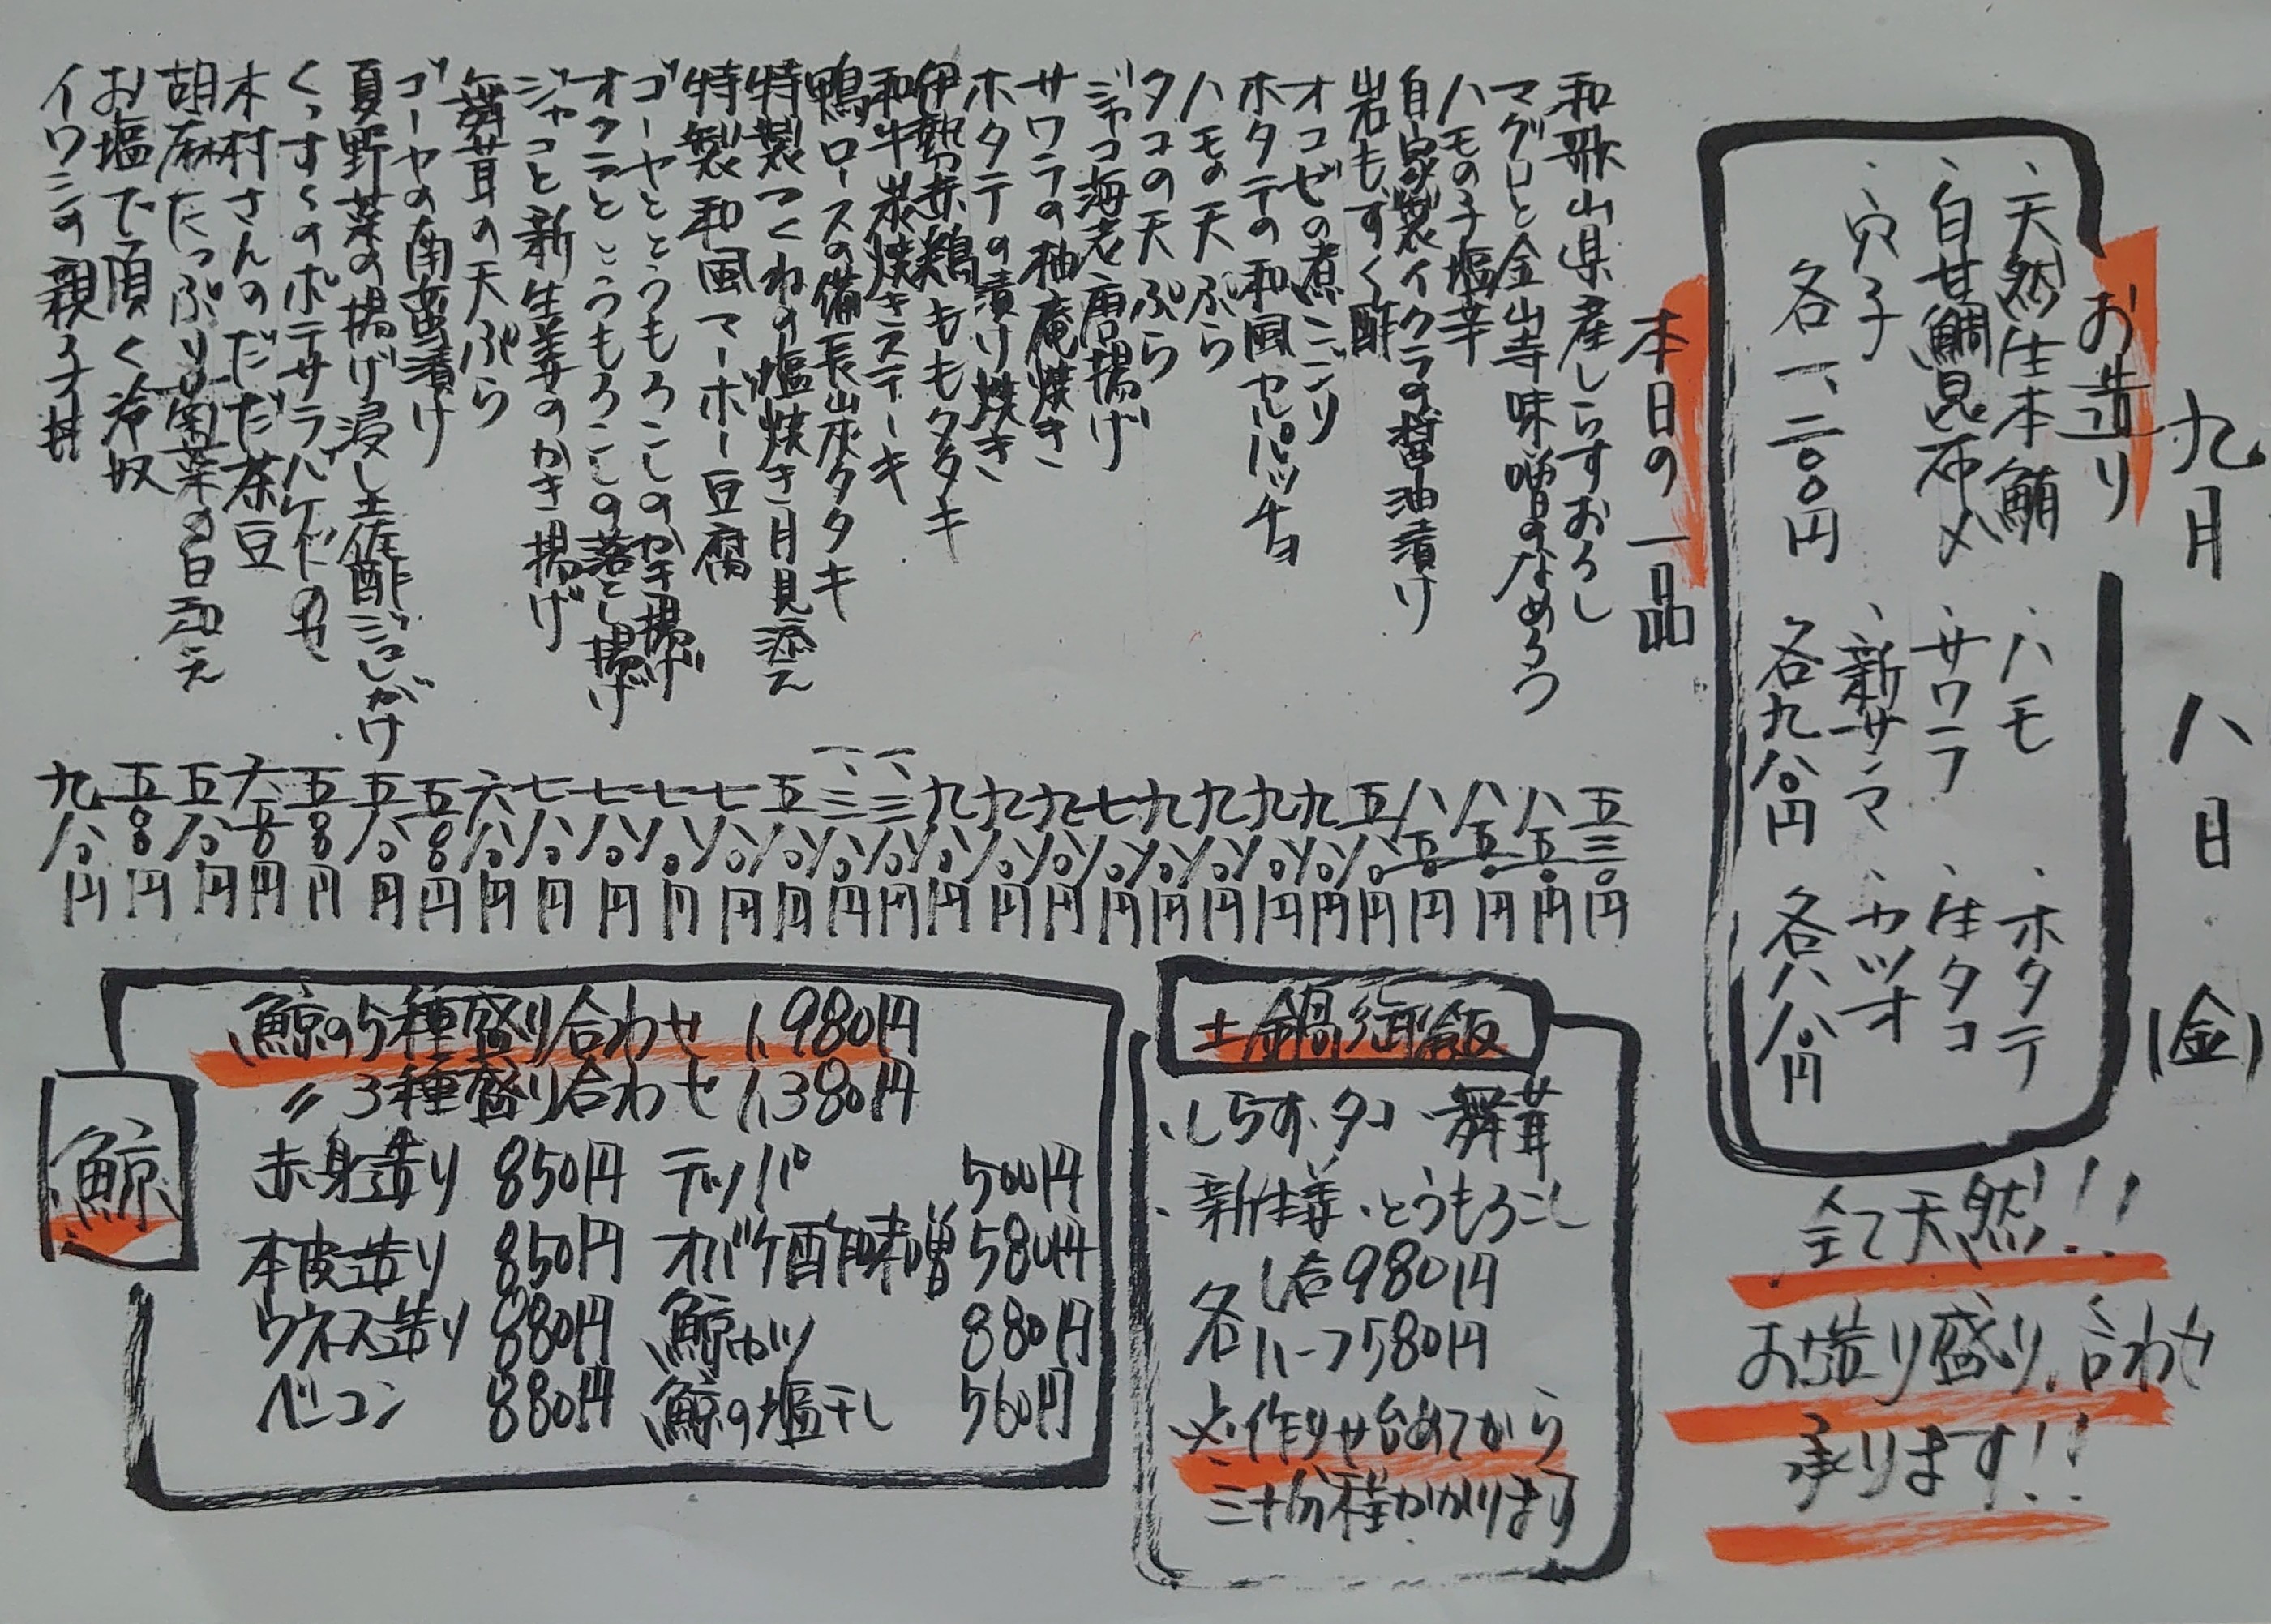 九月 八日 (金)
お造り
・天然生本鮪 ・ハモ ・ホタテ
・白甘鯛昆布〆 ・サワラ ・生タコ
・穴子 ・新サンマ ・カツオ
各一、二〇〇円 各九八〇円 各八八〇円
全て天然!!
お造り盛り合わせ
承ります!!
本日の一品
和歌山県産しらすおろし 五三〇円
マグロと金山寺味噌のなめろう 八五〇円
ハモの子塩辛 八五〇円
自家製イクラの醤油漬け 八五〇円
岩もずく酢 五八〇円
オコゼの煮こごり 九八〇円
ホタテの和風カルパッチョ 九八〇円
ハモの天ぷら 九八〇円
タコの天ぷら 九八〇円
ジャコ海老唐揚げ 七八〇円
サワラの柚庵焼き 九八〇円
ホタテの漬け焼き 九八〇円
伊勢赤鶏ももタタキ 九八〇円
和牛炭焼きステーキ 一、三八〇円
鴨ロースの備長炭タタキ 一、三八〇円
特製つくねの塩焼き月見添え 五八〇円
特製和風マーボー豆腐 七八〇円
ゴーヤととうもろこしのかき揚げ 七八〇円
オクラととうもろこしの落とし揚げ 七八〇円
ジャコと新生姜のかき揚げ 七八〇円
舞茸の天ぷら 六八〇円
ゴーヤの南蛮漬け 五八〇円
夏野菜の揚げ浸し土佐酢ジュレがけ 五八〇円
くんすくのポテサラバゲット 五八〇円
木村さんのだだ茶豆 六八〇円
胡麻たっぷり菊菜の白和え 五八〇円
お塩で頂く冷奴 五八〇円
イワシの親子丼 九八〇円
土鍋御飯
・しらす・タコ・舞茸
・新生姜・とうもろこし
各1合980円
各ハーフ580円
※作りせ始めてから
三十分程かかります
鯨
鯨の5種盛り合わせ 1,980円
〃3種盛り合わせ 1,380円
赤身造り 850円 テッパ 500円
本皮造り 850円 オバケ酢味噌 580円
ウネス造り 880円 鯨カツ 880円
ベーコン 880円 鯨の塩干し 560円